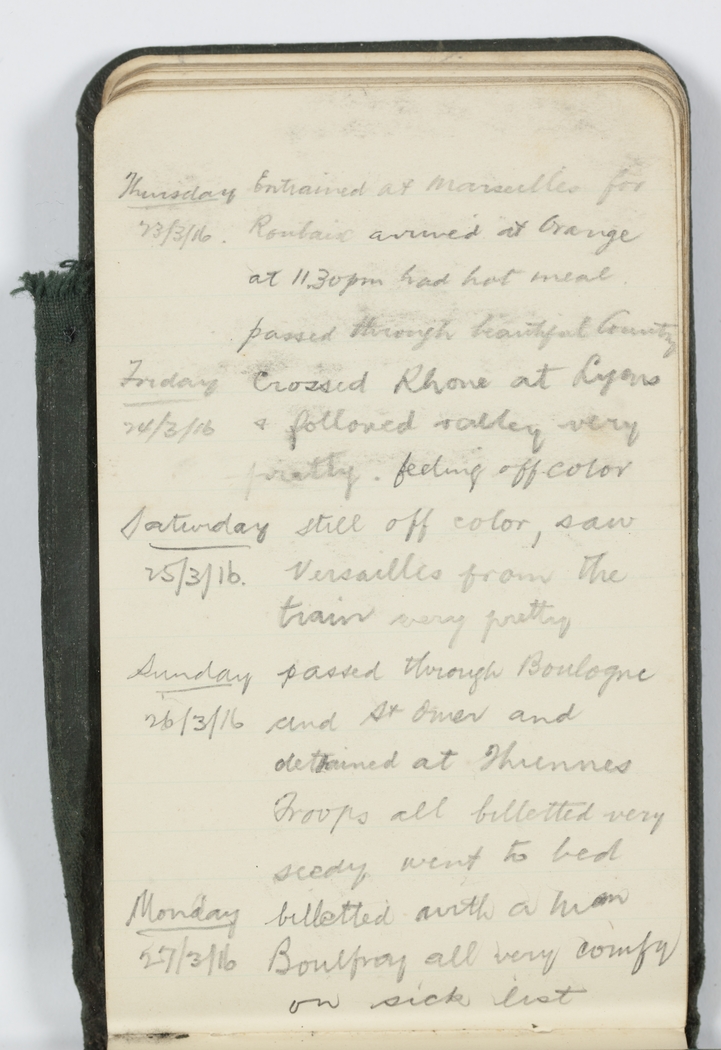 Thursday Entrained at Marseilles for
23/3/16. Roubaix arrived at Orange
at 11.30pm had hot meal.
passed through beautiful Country
Friday Crossed Rhone at Lyons
24/3/16 & followed valley very
pretty. feeling off color
Saturday still off color, saw
25/3/16. Versailles from the
train very pretty
Sunday passed through Boulogne
26/3/16 and St Omer and
detrained at Thiennes
Troops all billetted very
seedy went to bed
Monday billetted with a man
27/3/16 Boulfray all very comfy
on sick list